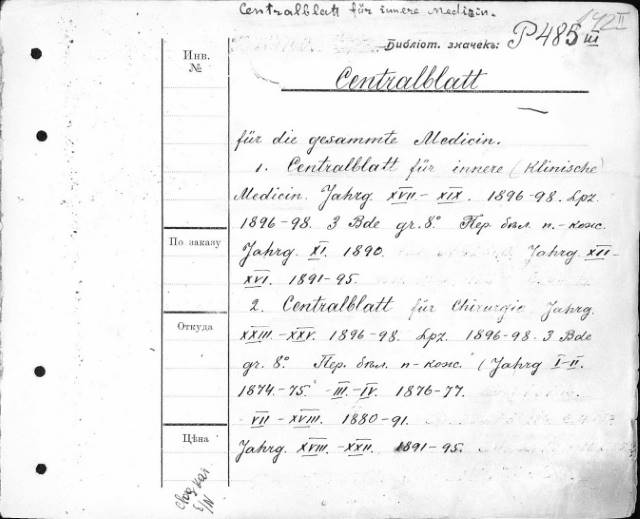 Centralblatt für innere Medizin.
Библіот. значекъ: P485 III
Инв.
№
Centralblatt
für die gesammte Medicin.
1. Centralblatt für innere (Klinische)
Medicin. Jahrg. XVII - XIX. 1896-98. Lpz.
1896-98. 3 Bde gr. 8°. Пер. бѣл. п.-кож.
По заказу
Jahrg. XI. 1890. Jahrg. XII-
XVI. 1891-95.
2. Centralblatt für Chirurgie Jahrg.
Откуда
XXIII.-XXV. 1896-98. Lpz. 1896-98. 3 Bde
gr. 8°. Пер. бѣл. п-кож. (Jahrg I-II.
1874-75. III.-IV. 1876-77.
VII - XVIII. 1880-91.
Цѣна
Jahrg. XVIII.-XXII. 1891-95.